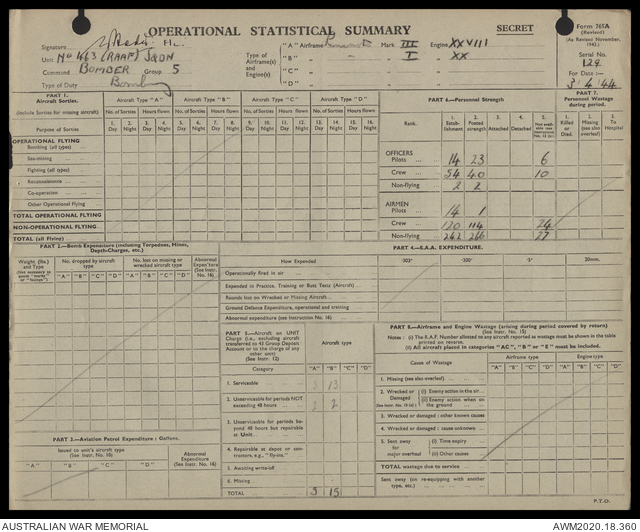 OPERATIONAL STATISTICAL SUMMARY
SECRET
Form 765A
(Revised)
(As Revised November, 1942.)
Signature
Unit No 463 (RAAF) SQDN
Command BOMBER Group 5
Type of Duty Bombing
Type of Airframe(s) and Engine(s)
"A" Airframe Mark III Engine XXVIII
"B" " " I " XX
"C" " "
"D" " "
Serial No. 129
For Date :—
3 4 44
PART 1.
Aircraft Sorties.
(Include Sorties for missing aircraft)
Purpose of Sorties
Aircraft Type "A" Aircraft Type "B" Aircraft Type "C" Aircraft Type "D"
No. of Sorties Hours flown No. of Sorties Hours flown No. of Sorties Hours flown No. of Sorties Hours flown
1. Day 2. Night 3. Day 4. Night 5. Day 6. Night 7. Day 8. Night 9. Day 10. Night 11. Day 12. Night 13. Day 14. Night 15. Day 16. Night
OPERATIONAL FLYING
Bombing (all types)
Sea-mining
Fighting (all types)
Reconnaissance
Co-operation
Other Operational Flying
TOTAL OPERATIONAL FLYING
NON-OPERATIONAL FLYING
TOTAL (all Flying)
PART 6.—Personnel Strength
Rank. 1. Establishment 2. Posted strength 3. Attached 4. Detached 5. Not available (see Instruction No. 13 (b))
OFFICERS
Pilots 14 23 6
Crew 54 40 10
Non-flying 2 2
AIRMEN
Pilots 14 1
Crew 120 114 24
Non-flying 242 266 27
PART 7.
Personnel Wastage during period.
1. Killed or Died. 2. Missing (see also overleaf) 3. To Hospital
PART 2.—Bomb Expenditure (including Torpedoes, Mines, Depth-Charges, etc.)
Weight (lbs.) and Type
No. dropped by aircraft type
No. lost on missing or wrecked aircraft type
Abnormal Expenditure (See Instr. No. 16)
"A" "B" "C" "D" "A" "B" "C" "D"
PART 4.—S.A.A. EXPENDITURE.
How Expended ·303" ·300" ·5" 20mm.
Operationally fired in air
Expended in Practice, Training or Butt Tests (Aircraft)
Rounds lost on Wrecked or Missing Aircraft
Ground Defence Expenditure, operational and training
Abnormal expenditure (see Instruction No. 16)
PART 3.—Aviation Petrol Expenditure : Gallons.
Issued to unit's aircraft type (See Instr. No. 10)
Abnormal Expenditure (See Instr. No. 16)
"A" "B" "C" "D"
PART 5.—Aircraft on UNIT Charge (i.e., excluding aircraft transferred to 43 Group Deposit Account or to the charge of any other unit)
(See Instr. 12)
Aircraft type
Category "A" "B" "C" "D"
1. Serviceable 3 13
2. Unserviceable for periods NOT exceeding 48 hours 2 2
3. Unserviceable for periods beyond 48 hours but repairable at Unit
4. Repairable at depot or contractors, e.g., "fly-ins."
5. Awaiting write-off
6. Missing
TOTAL 5 15
PART 8.—Airframe and Engine Wastage (arising during period covered by return)
(See Instr. No. 15)
Notes : (i) The R.A.F. Number allotted to any aircraft reported as wastage must be shown in the table printed on reverse.
(ii) All aircraft placed in categories "AC", "B" or "E" must be included.
Cause of Wastage
Airframe type Engine type
"A" "B" "C" "D" "A" "B" "C" "D"
1. Missing (see also overleaf)
2. Wrecked or Damaged (i) Enemy action in the air
(ii) Enemy action when on the ground
3. Wrecked or damaged : other known causes
4. Wrecked or damaged : cause unknown
5. Sent away for major overhaul (i) Time expiry
(ii) Other causes
TOTAL wastage due to service
Sent away (on re-equipping with another type, etc.)
P.T.O.
AUSTRALIAN WAR MEMORIAL
AWM2020.18.360